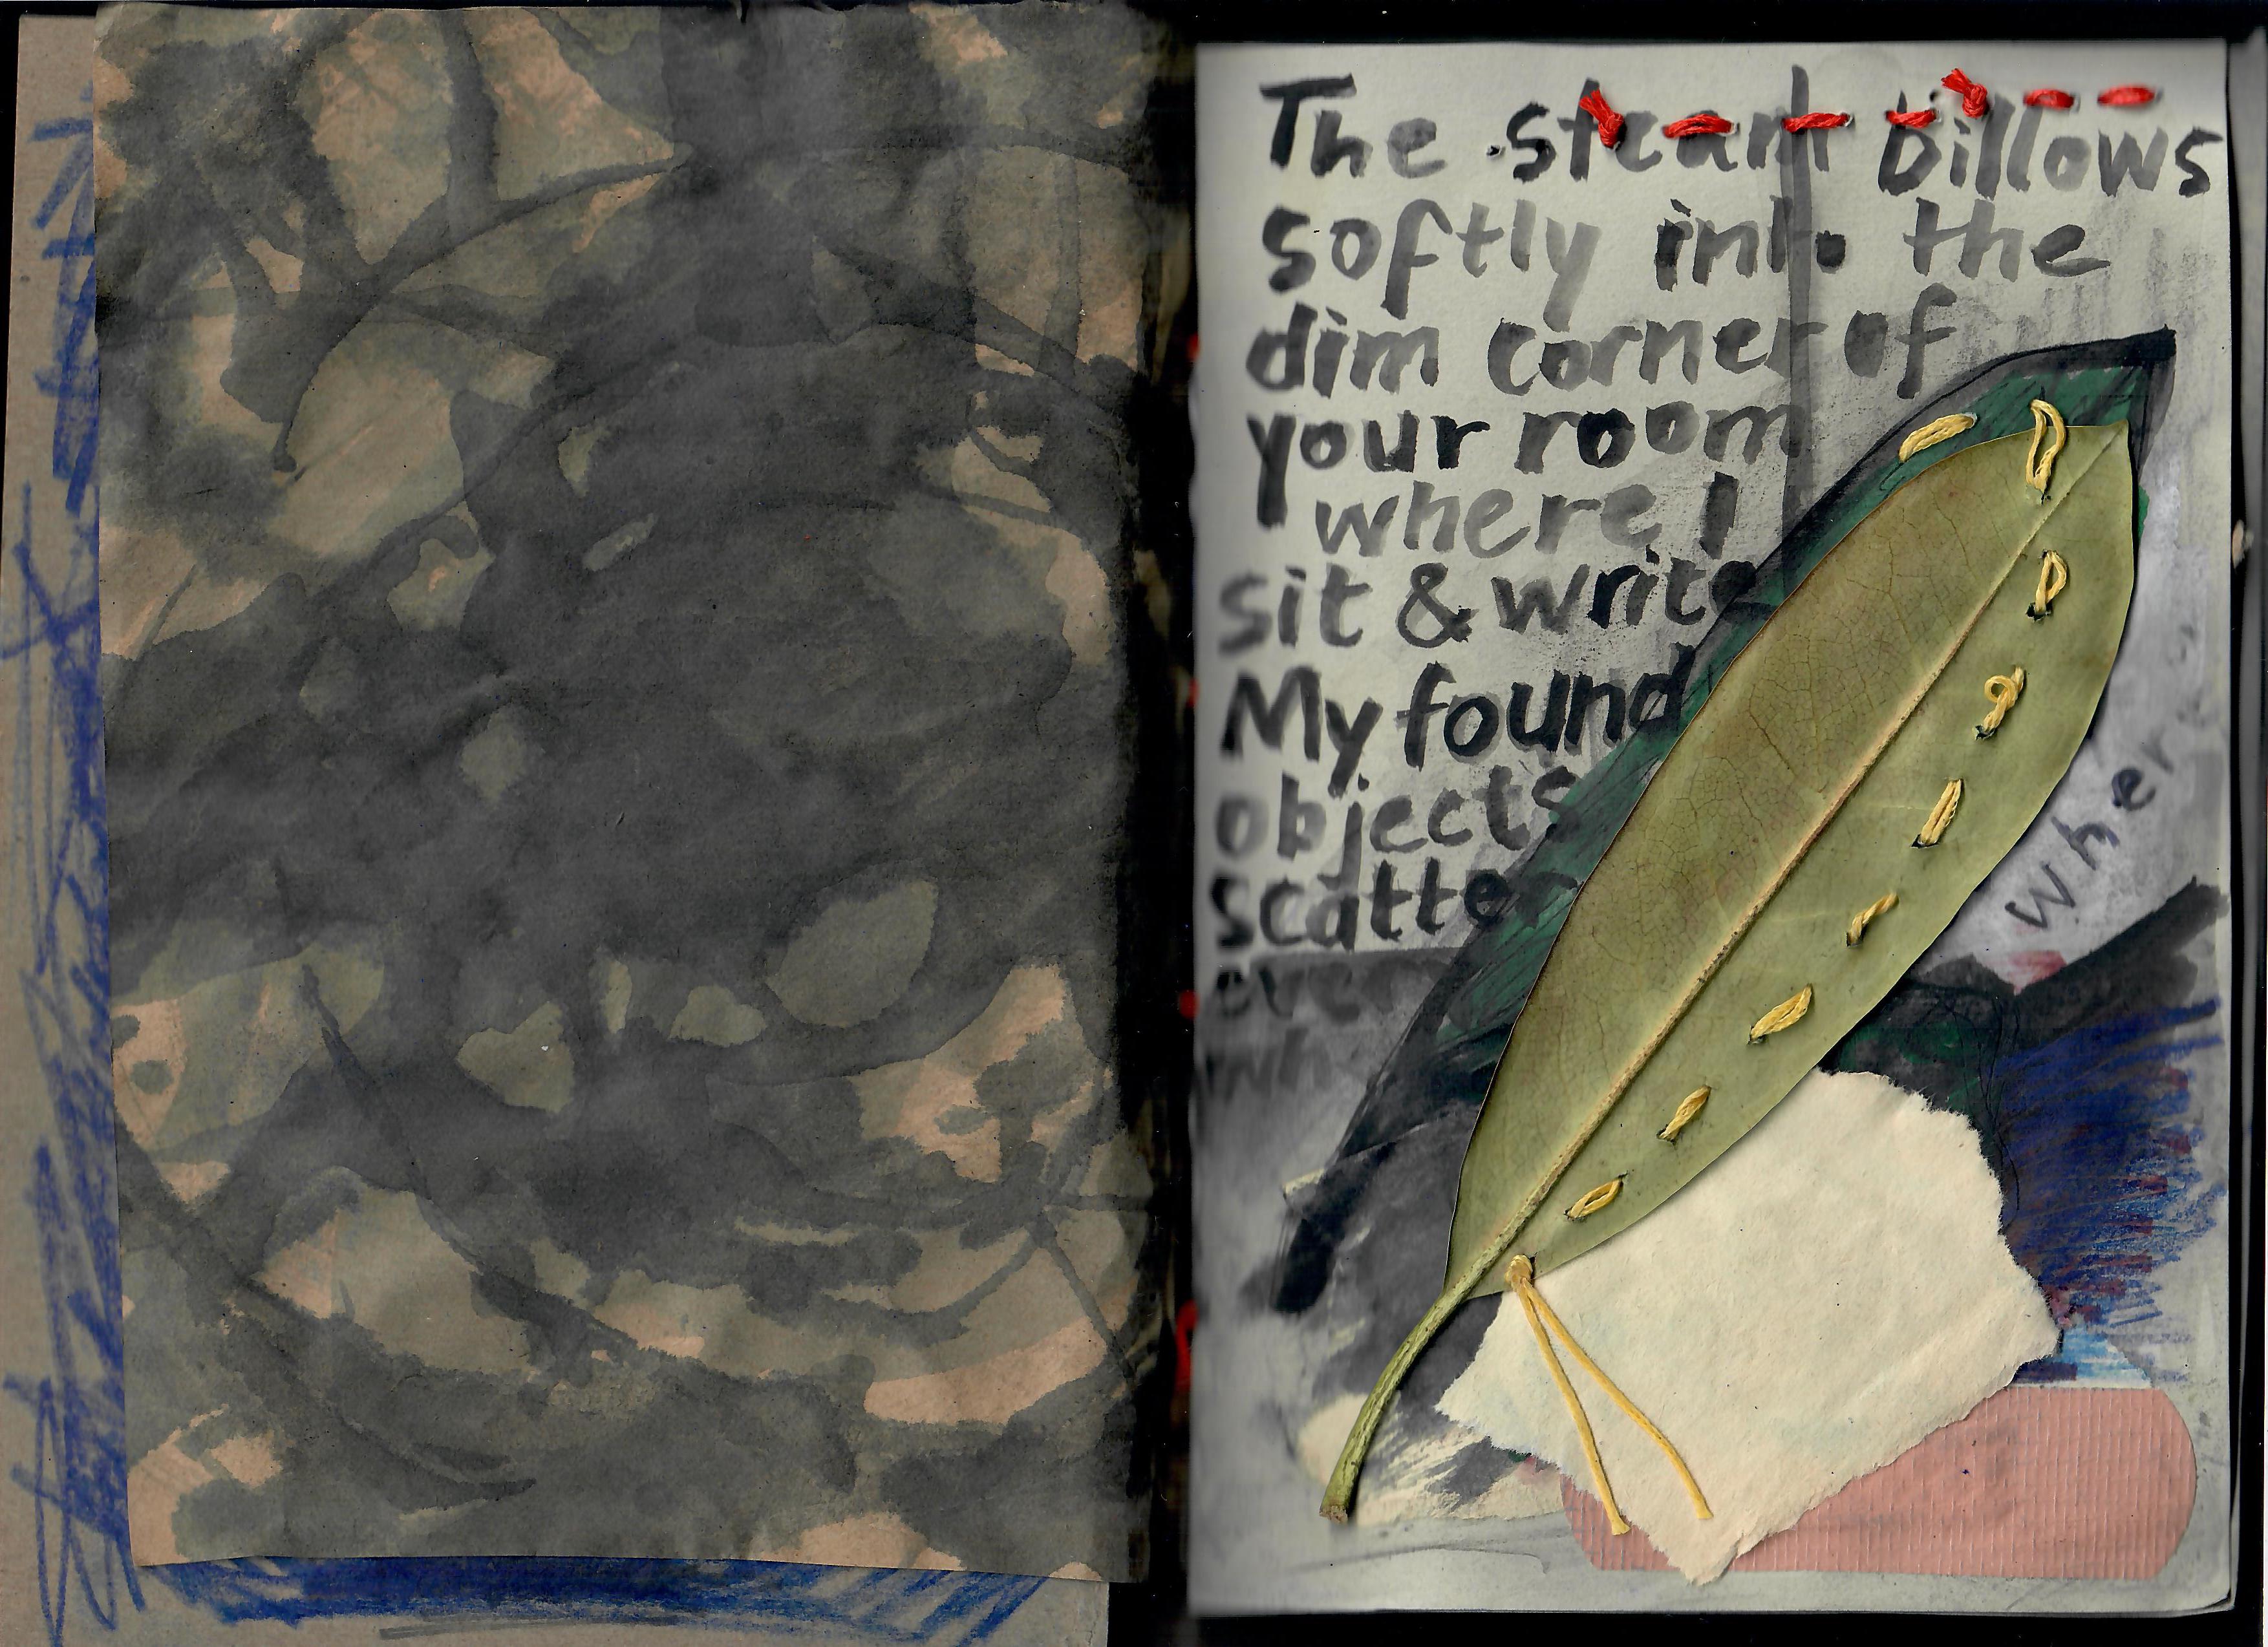 The steam billows
softly into the
dim corner of
your room
where I
sit & write
My found
objects
scatter
wher